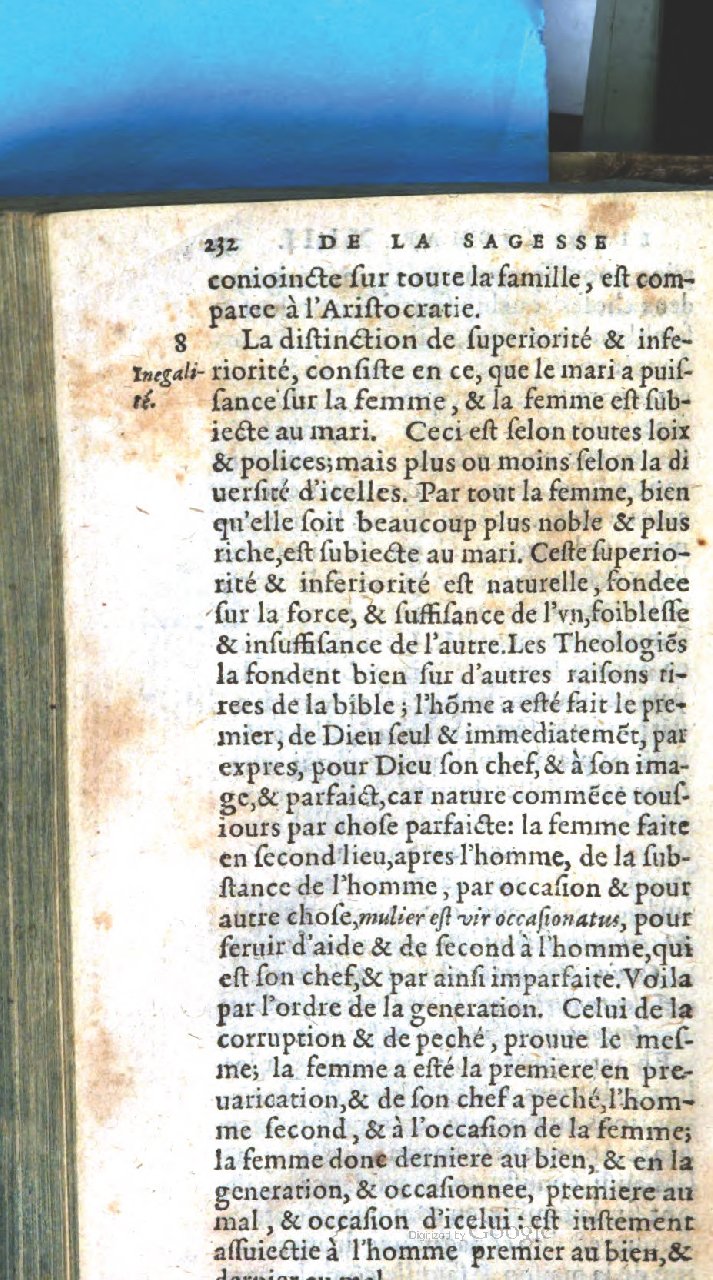 232 DE LA SAGESSE
conioincte ſur toute la famille, eſt com-
paree à l'Ariſtocratie.
8 La diſtinction de ſuperiorité & infe-
Inegali-
té.
riorité, conſiſte en ce, que le mari a puiſ-
ſance ſur la femme, & la femme eſt ſub-
iecte au mari. Ceci eſt ſelon toutes loix
& polices; mais plus ou moins ſelon la di
uerſité d'icelles. Par tout la femme, bien
qu'elle ſoit beaucoup plus noble & plus
riche, eſt ſubiecte au mari. Ceſte ſuperio-
rité & inferiorité eſt naturelle, fondee
ſur la force, & ſuffiſance de l'vn, foibleſſe
& inſuffiſance de l'autre. Les Theologiẽs
la fondent bien ſur d'autres raiſons ti-
rees de la bible; l'hõme a eſté fait le pre-
mier, de Dieu ſeul & immediatemẽt, par
expres, pour Dieu ſon chef, & à ſon ima-
ge, & parfaict, car nature commẽce touſ-
iours par choſe parfaicte: la femme faite
en ſecond lieu, apres l'homme, de la ſub-
ſtance de l'homme, par occaſion & pour
autre choſe, mulier eſt vir occaſionatus, pour
ſeruir d'aide & de ſecond à l'homme, qui
eſt ſon chef, & par ainſi imparfaite. Voila
par l'ordre de la generation. Celui de la
corruption & de peché, prouue le meſ-
me; la femme a eſté la premiere en pre-
uarication, & de ſon chef a peché, l'hom-
me ſecond, & à l'occaſion de la femme;
la femme donc derniere au bien, & en la
generation, & occaſionnee, premiere au
mal, & occaſion d'icelui: eſt iuſtement
aſſuiectie à l'homme premier au bien, &
dernier au mal
Digitized by Google